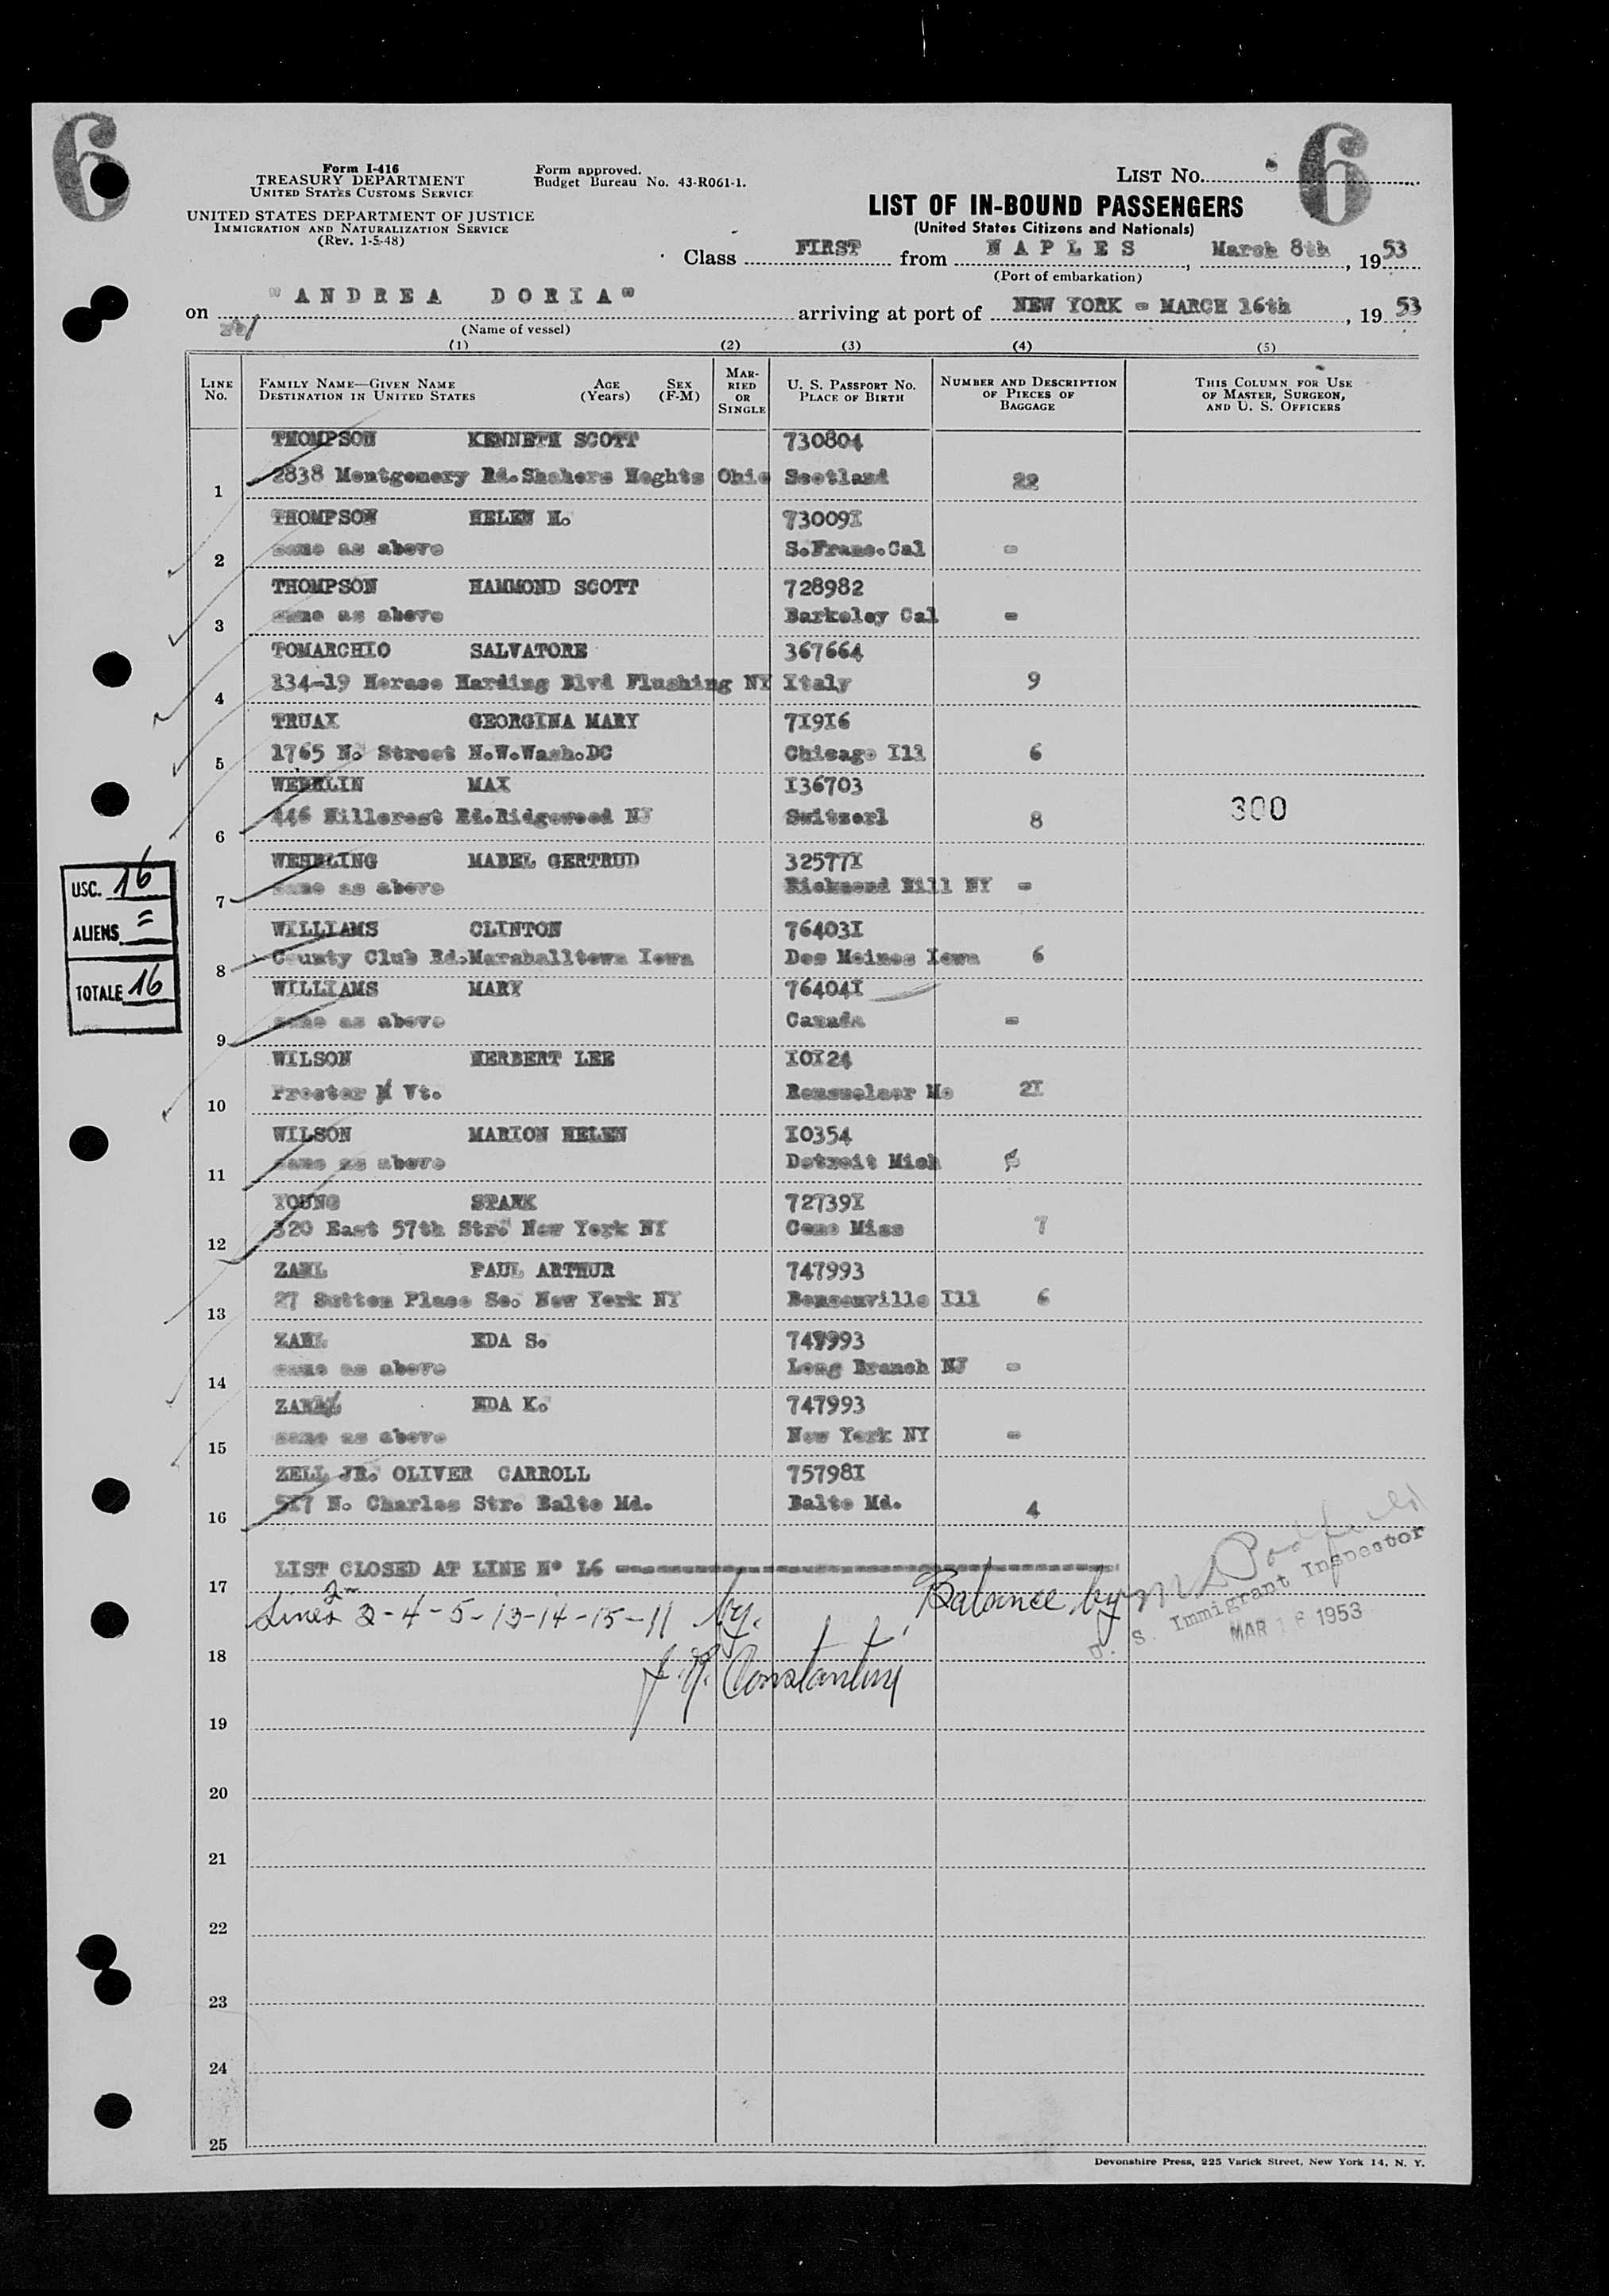 6
6
Form I-416
TREASURY DEPARTMENT
UNITED STATES CUSTOMS SERVICE
UNITED STATES DEPARTMENT OF JUSTICE
IMMIGRATION AND NATURALIZATION SERVICE
(Rev. 1-5-48)
Form approved.
Budget Bureau No. 43-R061-1.
LIST No.
LIST OF IN-BOUND PASSENGERS
(United States Citizens and Nationals)
Class FIRST from N A P L E S , March 8th , 19 53
(Port of embarkation)
on "A N D R E A D O R I A" arriving at port of NEW YORK - MARCH 16th , 19 53
(Name of vessel)
(1) (2) (3) (4) (5)
LINE No. FAMILY NAME—GIVEN NAME DESTINATION IN UNITED STATES AGE (Years) SEX (F-M) MARRIED OR SINGLE U. S. PASSPORT No. PLACE OF BIRTH NUMBER AND DESCRIPTION OF PIECES OF BAGGAGE THIS COLUMN FOR USE OF MASTER, SURGEON, AND U. S. OFFICERS
THOMPSON KENNETH SCOTT 730804
1 2838 Montgomery Rd.Shahers Heghts Ohio Scotland 22
THOMPSON HELEN H. 73009I
2 same as above S.Franc.Cal -
THOMPSON HAMMOND SCOTT 728982
3 same as above Barkeley Cal -
TOMARCHIO SALVATORE 367664
4 134-19 Horace Harding Blvd Flushing NY Italy 9
TRUAX GEORGINA MARY 7I9I6
5 1765 N. Street N.W.Wash.DC Chicago Ill 6
MAX I36703
6 446 Hillcrest Rd.Ridgewood NJ Switzerl 8 300
WEHRLING MABEL GERTRUD 32577I
7 same as above Richmond Hill NY -
WILLIAMS CLINTON 76403I
8 County Club Rd.Marshalltown Iowa Des Moines Iowa 6
WILLIAMS MARY 76404I
9 same as above Canada -
WILSON HERBERT LEE I0I24
10 Procter Vt. Rensselaer Mo 2I
WILSON MARION HELEN I0354
11 same as above Detroit Mich
YOUNG STARK 72739I
12 320 East 57th Str. New York NY Como Miss 7
ZAHL PAUL ARTHUR 747993
13 27 Sutton Place So. New York NY Bensenville Ill 6
ZAHL EDA S. 747993
14 same as above Long Branch NJ -
ZAHL EDA K. 747993
15 same as above New York NY -
ZELL JR. OLIVER CARROLL 75798I
16 5I7 N. Charles Str. Balto Md. Balto Md. 4
USC. 16
ALIENS =
TOTALE 16
17 LIST CLOSED AT LINE N° I6
Lines 2-4-5-13-14-15-11 by. Balance by
U. S. Immigrant Inspector
MAR 16 1953
18
Constantini
19
20
21
22
23
24
25
Devonshire Press, 225 Varick Street, New York 14, N. Y.